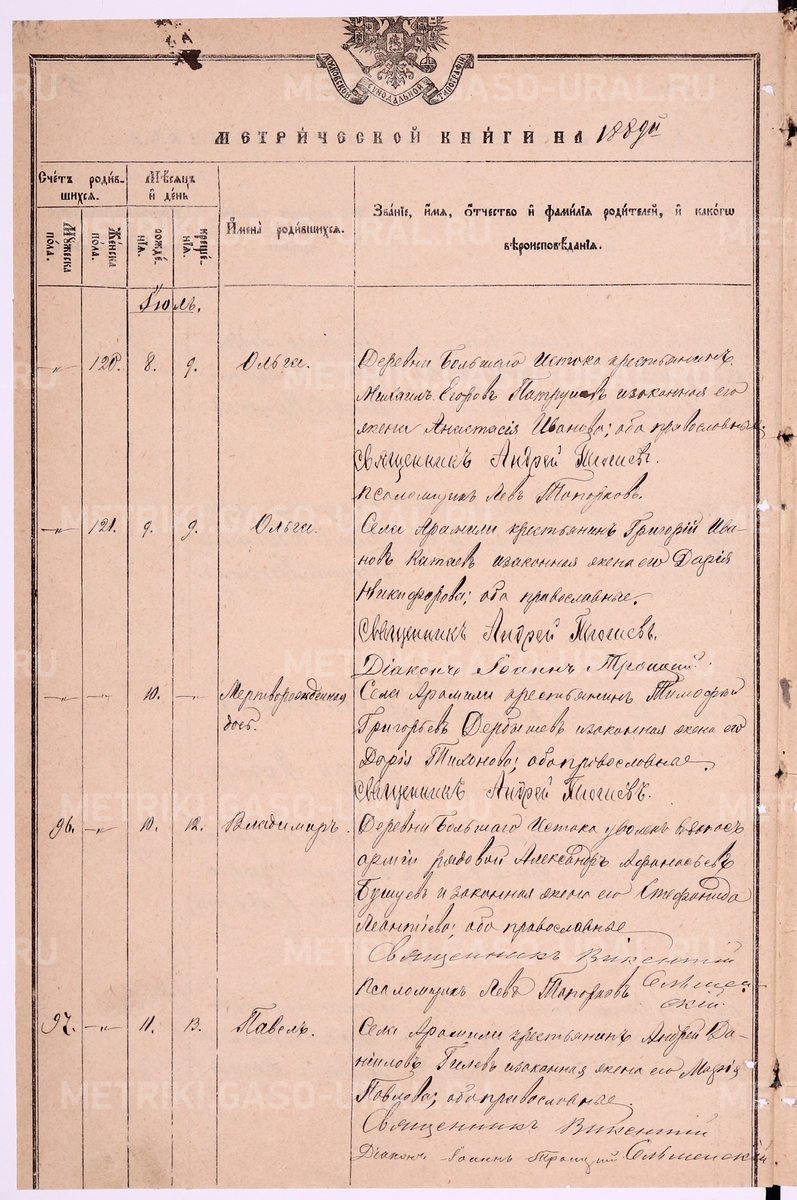 МОСКОВСКОЙ СѴНОДАЛЬНОЙ ТИПОГРАФІИ
МЕТРИ́ЧЕСКОЙ КНИ́ГИ НА 188
Сче́тъ роди́в-
шихся.
Мѣ́сяцъ
и де́нь
И҆мена̀ роди́вшихся.
Зва́ніе, и҆́мя, ѻ҆́тчество и҆ фами́лія роди́телей, и҆ како́гѡ
вѣроисповѣ́данія.
Му́жеска
по́ла.
Же́нска
по́ла.
рожде́-
нія.
креще́-
нія.
Іюль.
-„- 120. 8. 9. Ольга. Деревни Большаго Истока крестьянинъ
Михаилъ Егоровъ Патрушевъ изаконная его
жена Анастасія Иванова; оба православные.
Священникъ Андрей
Псаломщикъ Левъ Топорковъ.
-„- 121. 9. 9. Ольга. Села Арамили крестьянинъ Григорій Ива-
новъ Катаевъ изаконная жена его Дарія
Никифорова; оба православные.
Священникъ Андрей
Діаконъ Іоаннъ Троицкій.
-„- -„- 10. -„- Мертворожденная Села Арамили крестьянинъ Тимофей
дочь. Григорьевъ Дербышевъ изаконная жена его
Дарія Тихонова; оба православные.
Священникъ Андрей
96. -„- 12. Владимиръ. Деревни Большаго Истока уволен
арміи рядовой Александръ Афанасьевъ
Бушуевъ и законная жена его Стефанида
Леонтіева; оба православные
Священникъ Викентій
Псаломщикъ Левъ Топорковъ
97. -„- 11. 13. Павелъ. Села Арамили крестьянинъ Андрей Да-
ніиловъ Гилевъ изаконная жена его Марія
Павлова; оба православные.
Священникъ Викентій
Діаконъ Іоаннъ Троицкій
METRIKI.GASO-URAL.RU